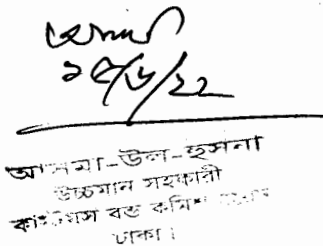 ১৫/৬/২২
আসমা-উল-হুসনা
উচ্চমান সহকারী
কাস্টমস বন্ড
ঢাকা।